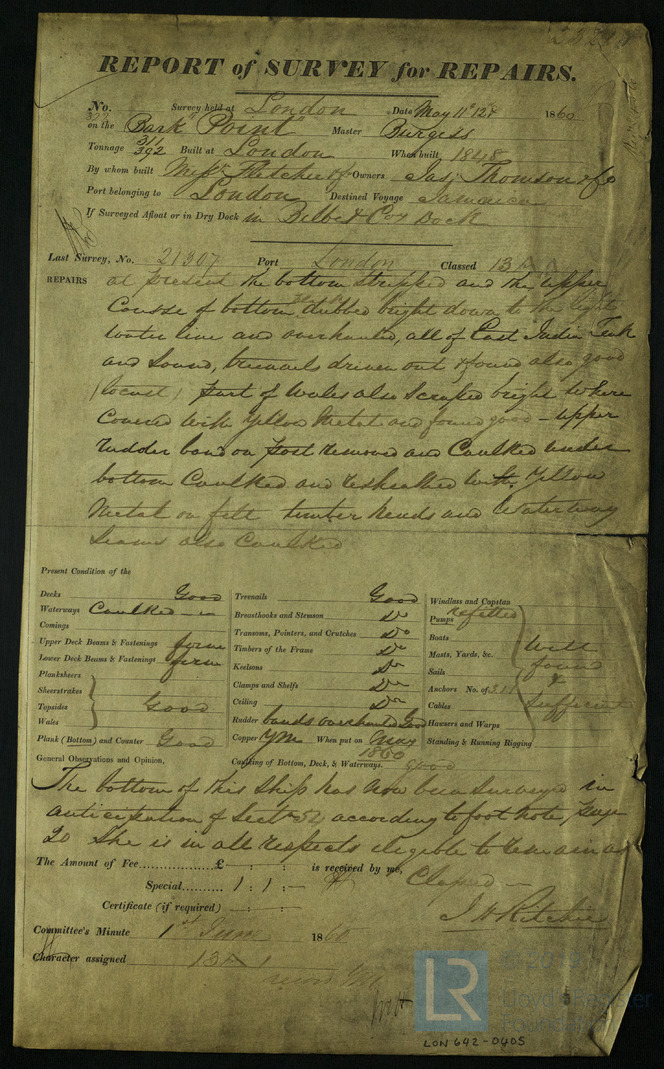 REPORT of SURVEY for REPAIRS.
No. Survey held at London Date May 11th & 12th 1860
on the Bark "Point" Master Burgess
Tonnage 311 392 Built at London When built 1848
By whom built Messrs Fletcher & Owners Jas. Thomson & Co
Port belonging to London Destined Voyage Jamaica
If Surveyed Afloat or in Dry Dock in Bilbe & Coy Dock
Last Survey, No. 21307 Port London Classed 13 A 1
REPAIRS at present the bottom stripped and the upper
Course of bottom dubbed bright down to the light
water line and overhauled, all of East India Teak
and Sound, treenails driven out & found also good
(locust) Part of Wales also Scraped bright where
Covered with Yellow Metal and found good - upper
rudder band on post removed and Caulked under
bottom Caulked and resheathed with Yellow
Metal on felt timber heads and Waterway
Seams also Caulked
Present Condition of the
Decks Good
Waterways Caulked
Comings
Upper Deck Beams & Fastenings firm
Lower Deck Beams & Fastenings firm
Planksheers
Sheerstrakes
Topsides Good
Wales
Plank (Bottom) and Counter Good
Treenails Good
Breasthooks and Stemson Do
Transoms, Pointers, and Crutches Do
Timbers of the Frame Do
Keelsons Do
Clamps and Shelfs Do
Ceiling Do
Rudder bands overhauled Good
Copper YM When put on May 1860
Caulking of Bottom, Deck, & Waterways. good
Windlass and Capstan
Pumps Refitted
Boats
Masts, Yards, &c. Well
Sails found
Anchors No. of 3. &
Cables Sufficient
Hawsers and Warps
Standing & Running Rigging
General Observations and Opinion,
The bottom of this Ship has now been Surveyed in
anticipation of Sectn 52 according to foot note, page
20 She is in all respects eligible to remain as
The Amount of Fee £ : : is received by me, Classed
Special 1 : 1 : -
Certificate (if required) : :
J H Ritchie
Committee's Minute 1st June 1860
Character assigned 13 A 1
LR
Lloyd's Register
Foundation
LON 642-0405